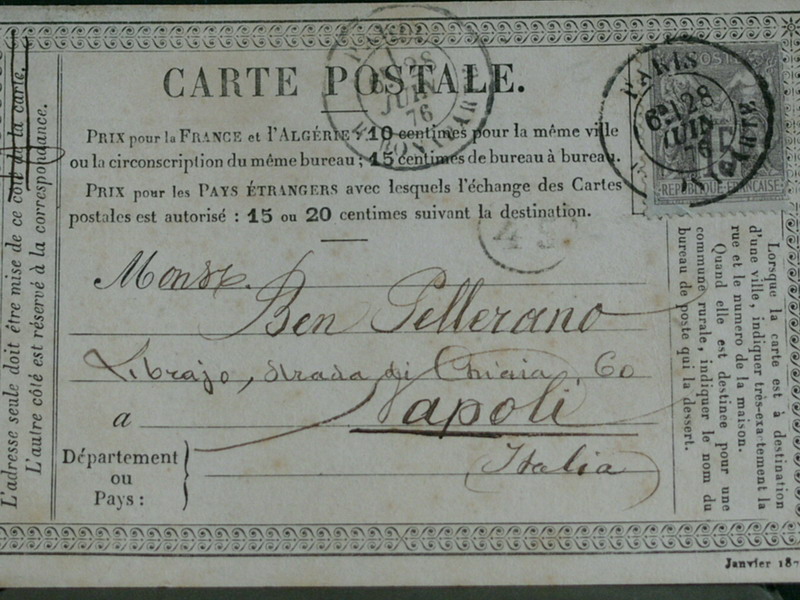 CARTE POSTALE.
PRIX pour la FRANCE et l'ALGÉRIE, 10 centimes pour la même ville
ou la circonscription du même bureau ; 15 centimes de bureau à bureau.
PRIX pour les PAYS ÉTRANGERS avec lesquels l'échange des Cartes
postales est autorisé : 15 ou 20 centimes suivant la destination.
Monsr.
Ben Pellerano
Librajo, strada di Chiaia, 60
a Napoli
Département
ou
Pays :
Italia
L'adresse seule doit être mise de ce côté de la carte.
L'autre côté est réservé à la correspondance.
Lorsque la carte est à destination
d'une ville, indiquer très-exactement la
rue et le numero de la maison.
Quand elle est destinée pour une
commune rurale, indiquer le nom du
bureau de poste qui la dessert.
PARIS
6E 28
JUIN
76
28
JUIN
76
REPUBLIQUE FRANÇAISE
Janvier 187